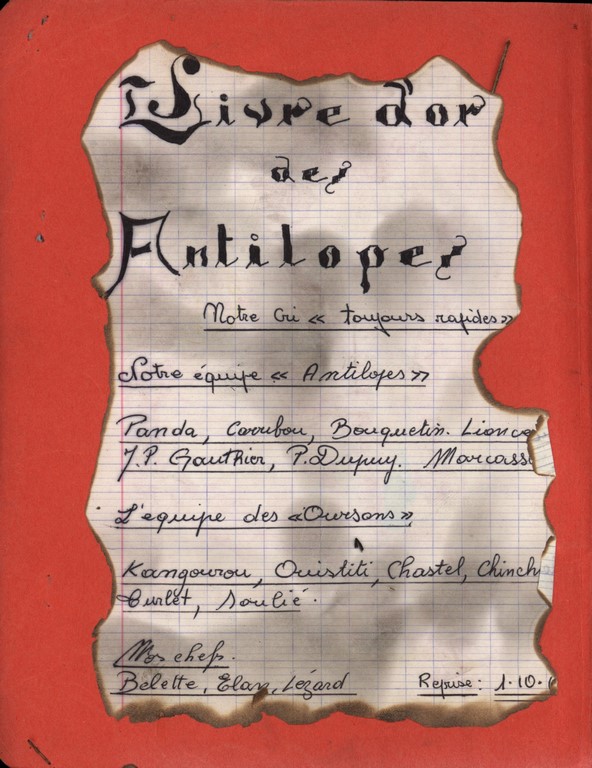 Livre d'or
des
Antilopes
Notre Cri « toujours rapides »
Notre équipe « Antilopes »
Panda, Caribou, Bouquetin. Lionce
J.P. Gauthier, P. Dupuy. Marcass
L'equipe des « Oursons »
Kangourou, Ouistiti, Chastel, Chinch
Curlet, Soulié.
Nos chefs.
Belette, Elan, Lézard Reprise: 1.10.